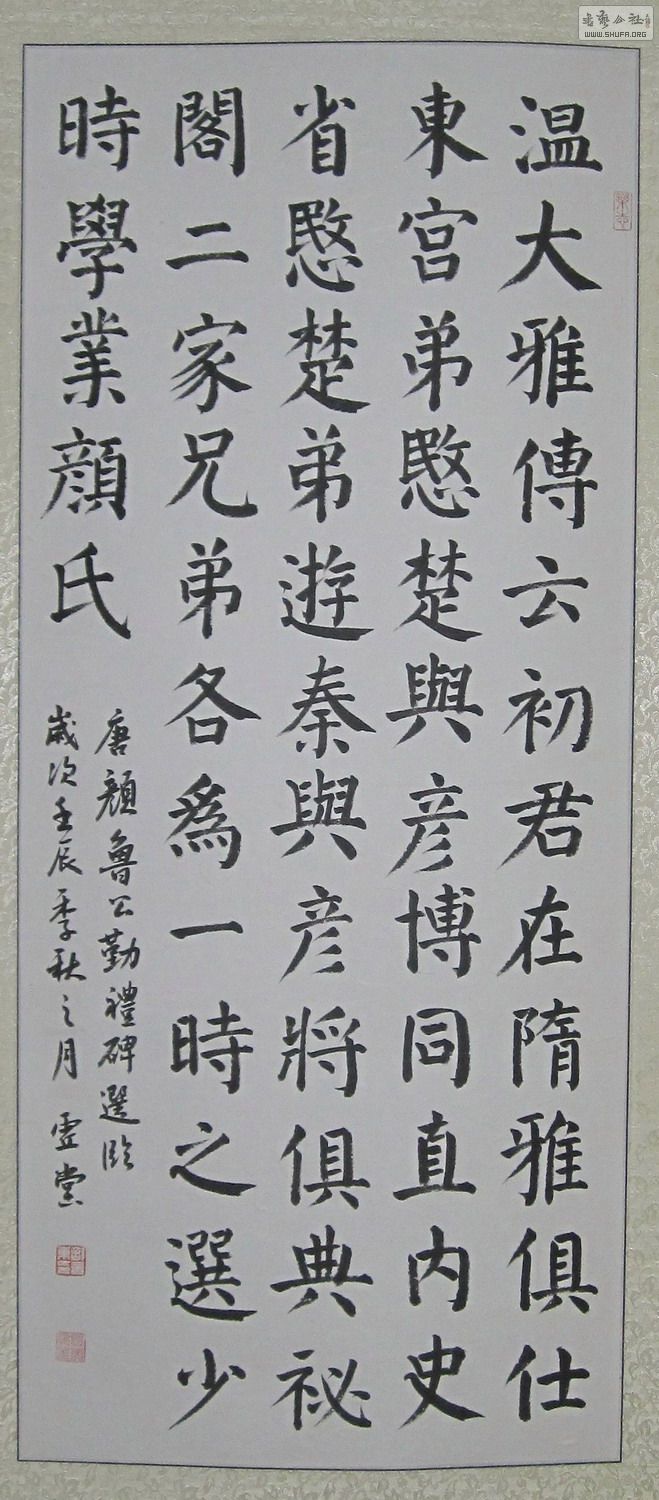 温大雅傳云初君在隋雅俱仕
東宮弟愍楚與彦博同直内史
省愍楚弟遊秦與彦將俱典祕
閣二家兄弟各為一時之選少
時學業顔氏
唐顔魯公勤禮碑選臨
歲次壬辰季秋之月
WWW.SHUFA.ORG